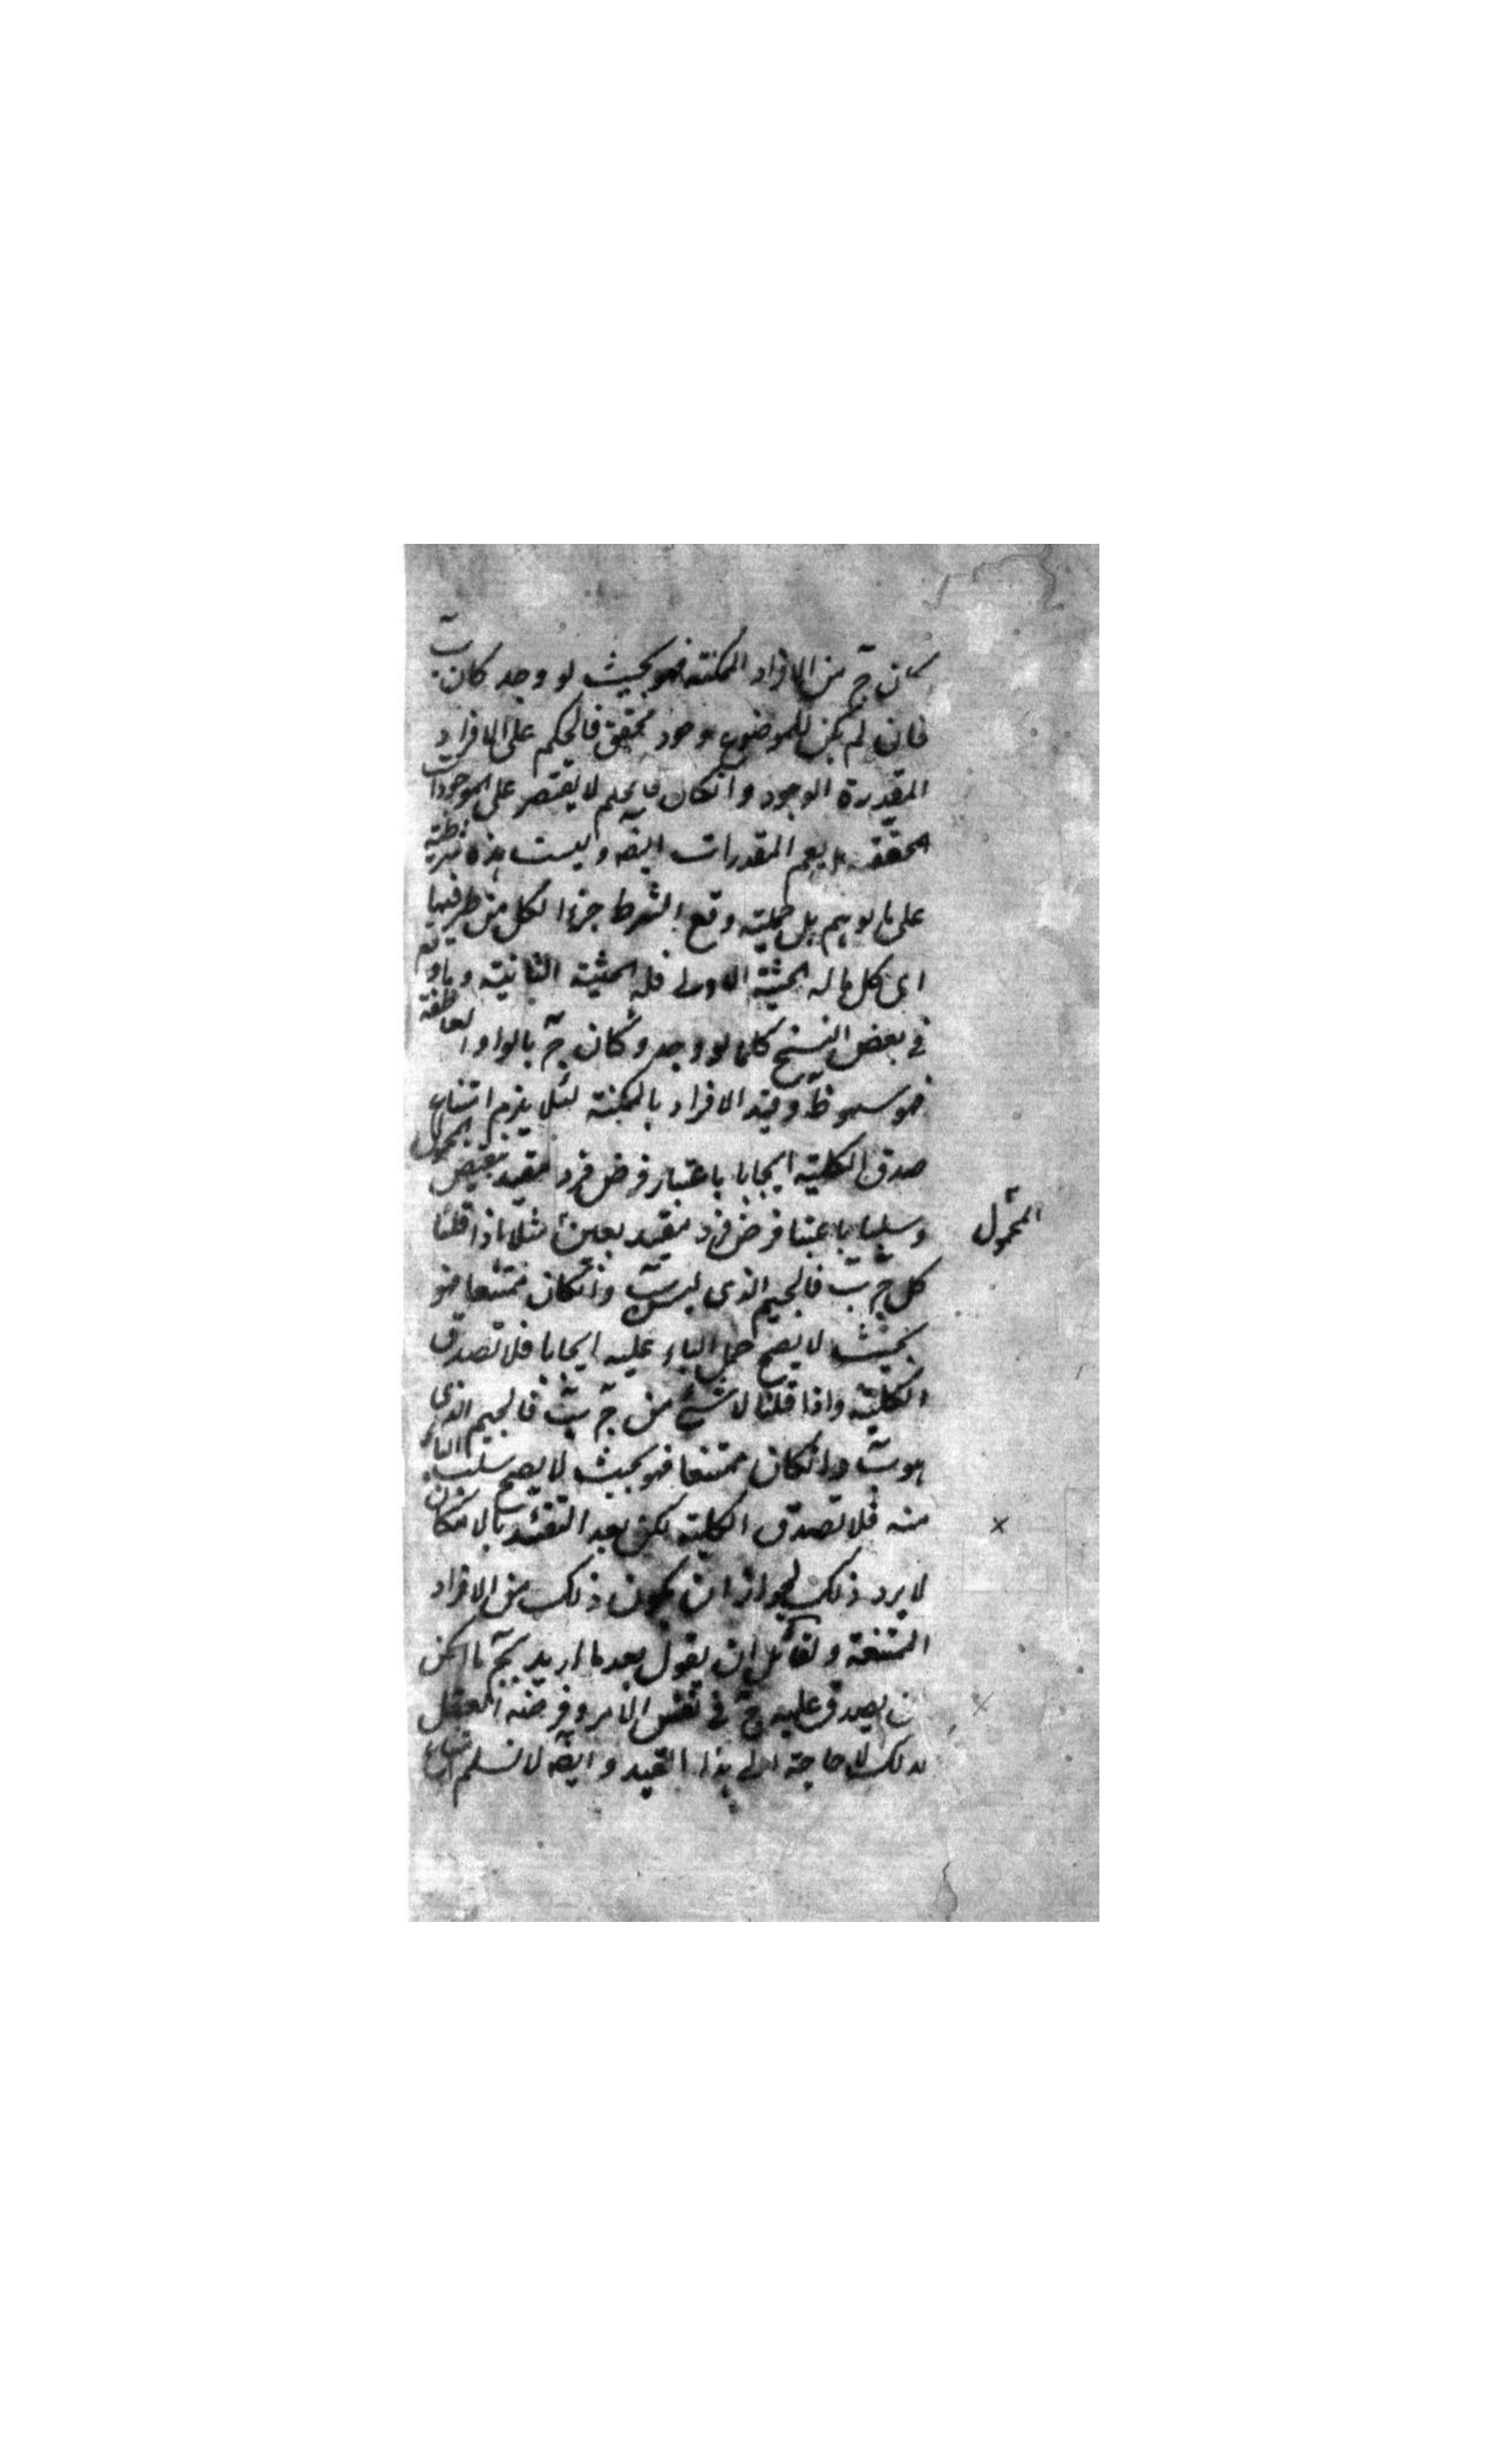 كان ج من الافراد الممكنة فهو بحيث لو وجد كان ب
فان لم يكن للموضوع وجود محقق فالحكم على الافراد
المقدرة الوجود وانكان فالحكم لا يقتصر على الموجودات
المحققة بل يعم المقدرات ايضه وليست هذه شرطية
على ما يوهم بل حملية وقع الشرط جزءا لكل من طرفيها
اى كل ما له الحيثية الاولى فله الحيثية الثانية وما وقع
فى بعض النسخ كلما لو وجد وكان ج بالواو العاطفة
فهو سهو ظ وقيد الافراد بالممكنة لئلا يلزم امتناع
صدق الكلية ايجابا باعتبار فرض فرد مقيد بنقيض المحمول
وسلبا باعتبار فرض فرد مقيد بعين مثلا اذا قلنا
المحمول
كل ج ب فالجيم الذى ليس ب وانكان ممتنعا فهو
بحيث لا يصح حمل الباء عليه ايجابا فلا تصدق
الكلية واذا قلنا لا شئ من ج ب فالجيم الذى
هو ب وانكان ممتنعا فهو بحيث لا يصح سلب الباء
منه فلا تصدق الكلية لكن بعد التقييد بالامكان
لا يرد ذلك لجواز ان يكون ذلك من الافراد
الممتنعة ولقائل ان يقول بعد ما اريد بج ما امكن
ان يصدق عليه ج فى نفس الامر وفرضه العقل
كذلك لا حاجة الى هذا القيد وايضه لا نسلم امتناع